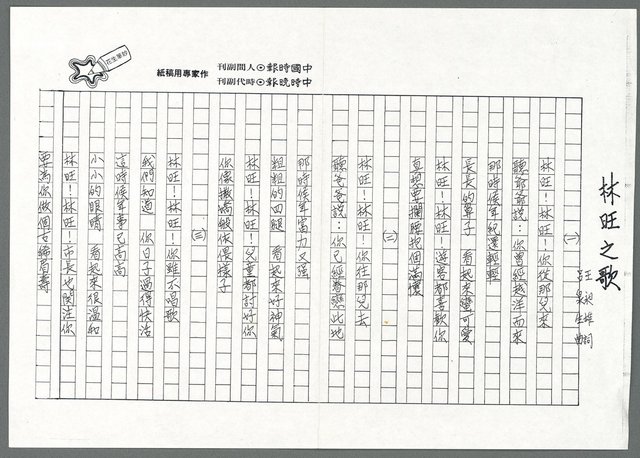 林旺之歌
王昶雄 詞
呂泉生 曲
(一)
林旺！林旺！你從那兒來
聽爺爺說：你曾經越洋而來
那時候年紀還輕輕
長長的鼻子 看起來蠻可愛
林旺！林旺！遊客都喜歡你
真想要攔腰抱個滿懷
(二)
林旺！林旺！你往那兒去
聽爸爸說：你已經眷戀此地
那時候年富力又強
粗粗的四腿 看起來好神氣
林旺！林旺！兒童都討好你
你像撒嬌般依偎樣子
(三)
林旺！林旺！你雖不唱歌
我們知道 你日子過得快活
這時候年事已高高
小小的眼睛 看起來很溫和
林旺！林旺！市長也關注你
要為你做個古稀眉壽
中國時報⊙人間副刊
中時晚報⊙時代副刊
作家專用稿紙
花生筆抄